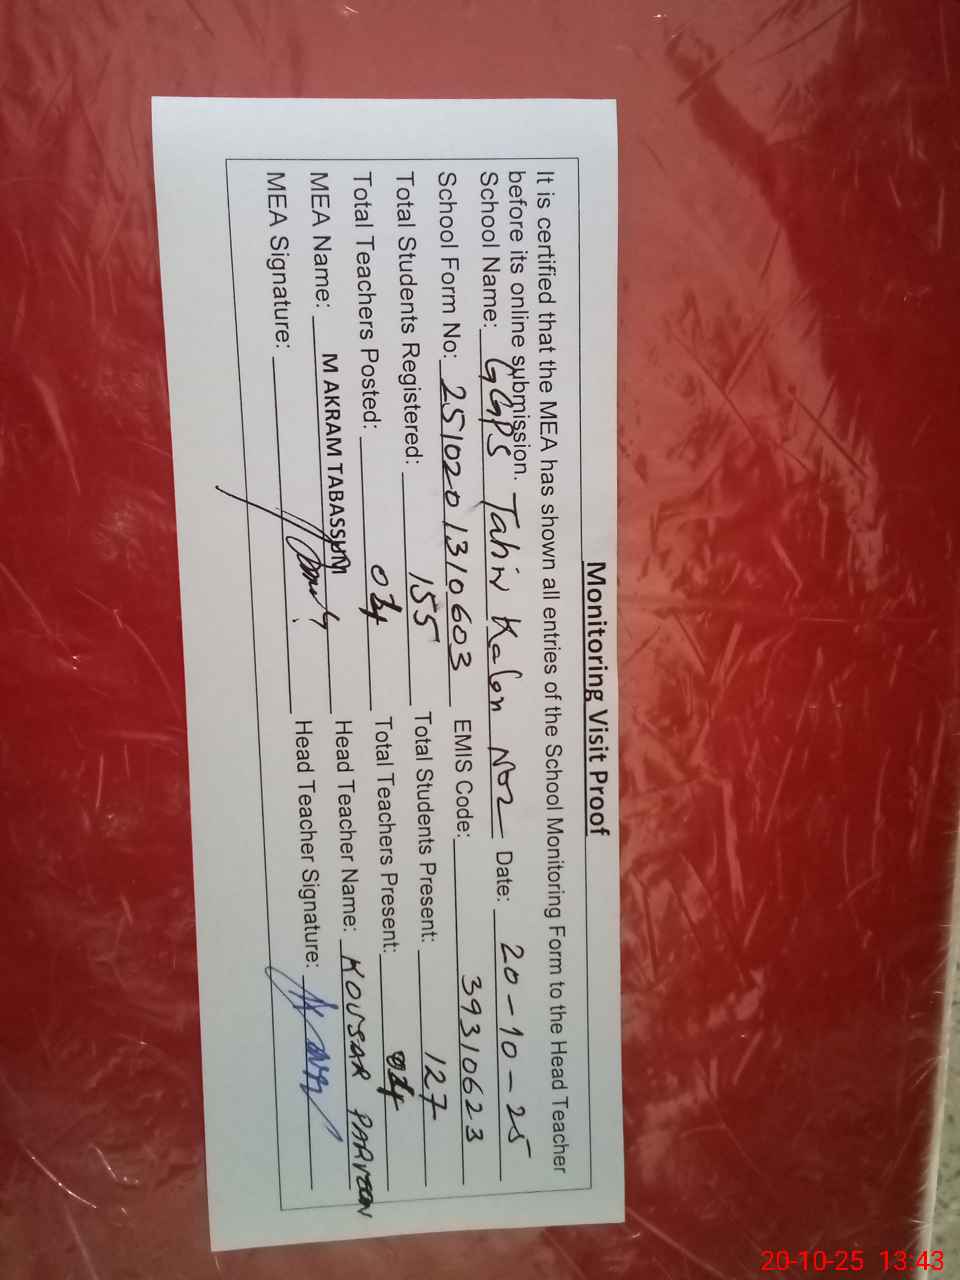 Monitoring Visit Proof
It is certified that the MEA has shown all entries of the School Monitoring Form to the Head Teacher
before its online submission.
School Name: GGPS Tahir Kalan No2 Date: 20-10-25
School Form No: 2510201310603 EMIS Code: 39310623
Total Students Registered: 155 Total Students Present: 127
Total Teachers Posted: 04 Total Teachers Present: 04
MEA Name: M AKRAM TABASSUM Head Teacher Name: KOUSAR PARVEEN
MEA Signature: Head Teacher Signature:
20-10-25 13:43